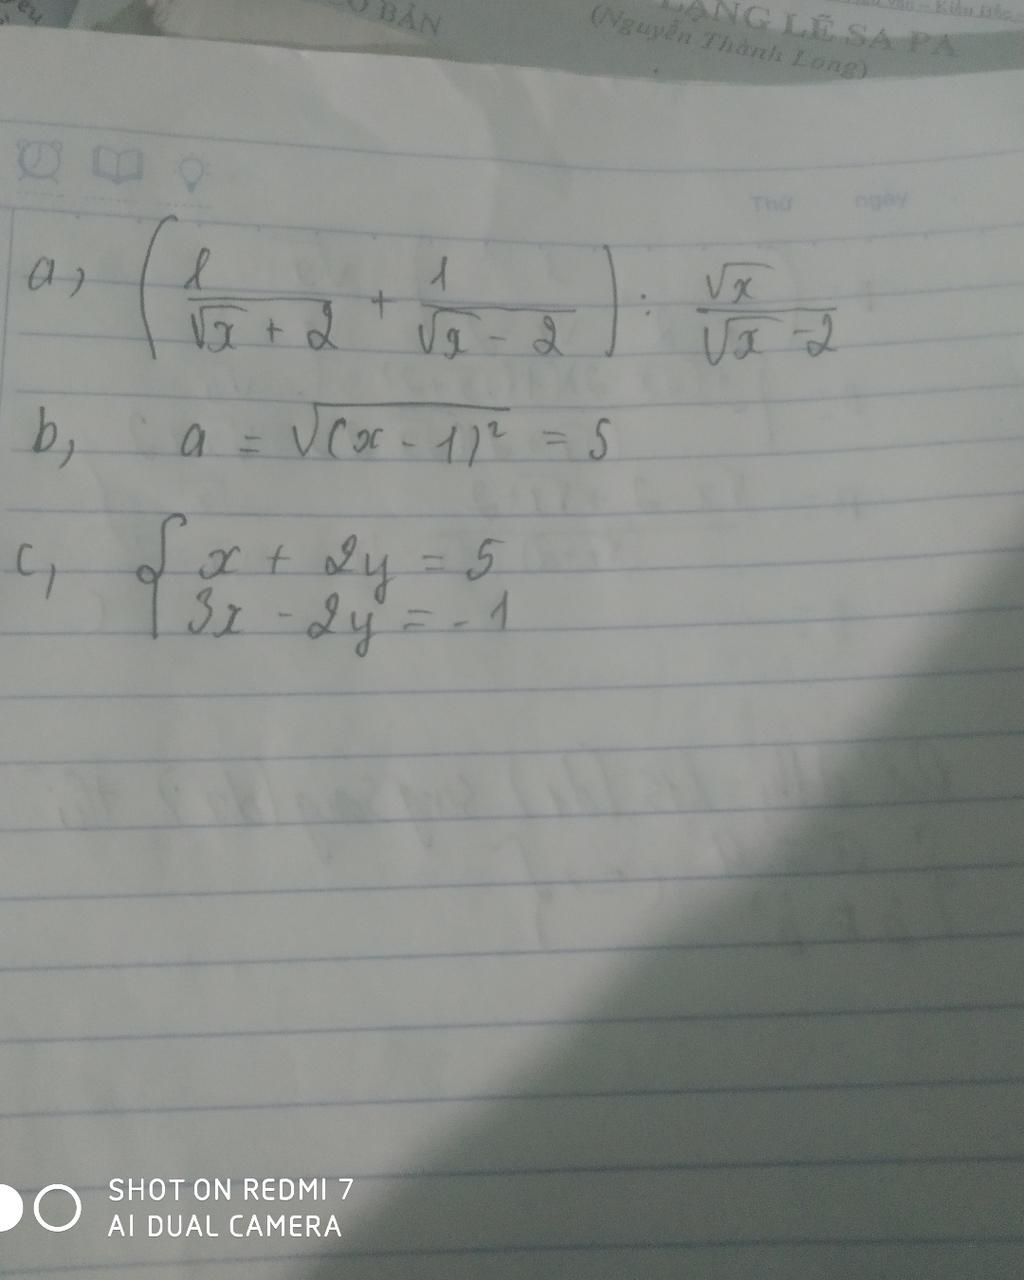 CƠ BẢN
LẶNG LẼ SA PA
(Nguyễn Thành Long)
Thứ ngày
a, (1/(√x + 2) + 1/(√x - 2)) : √x/(√x - 2)
b, a = √(x - 1)² = 5
c, { x + 2y = 5
3x - 2y = -1
SHOT ON REDMI 7
AI DUAL CAMERA